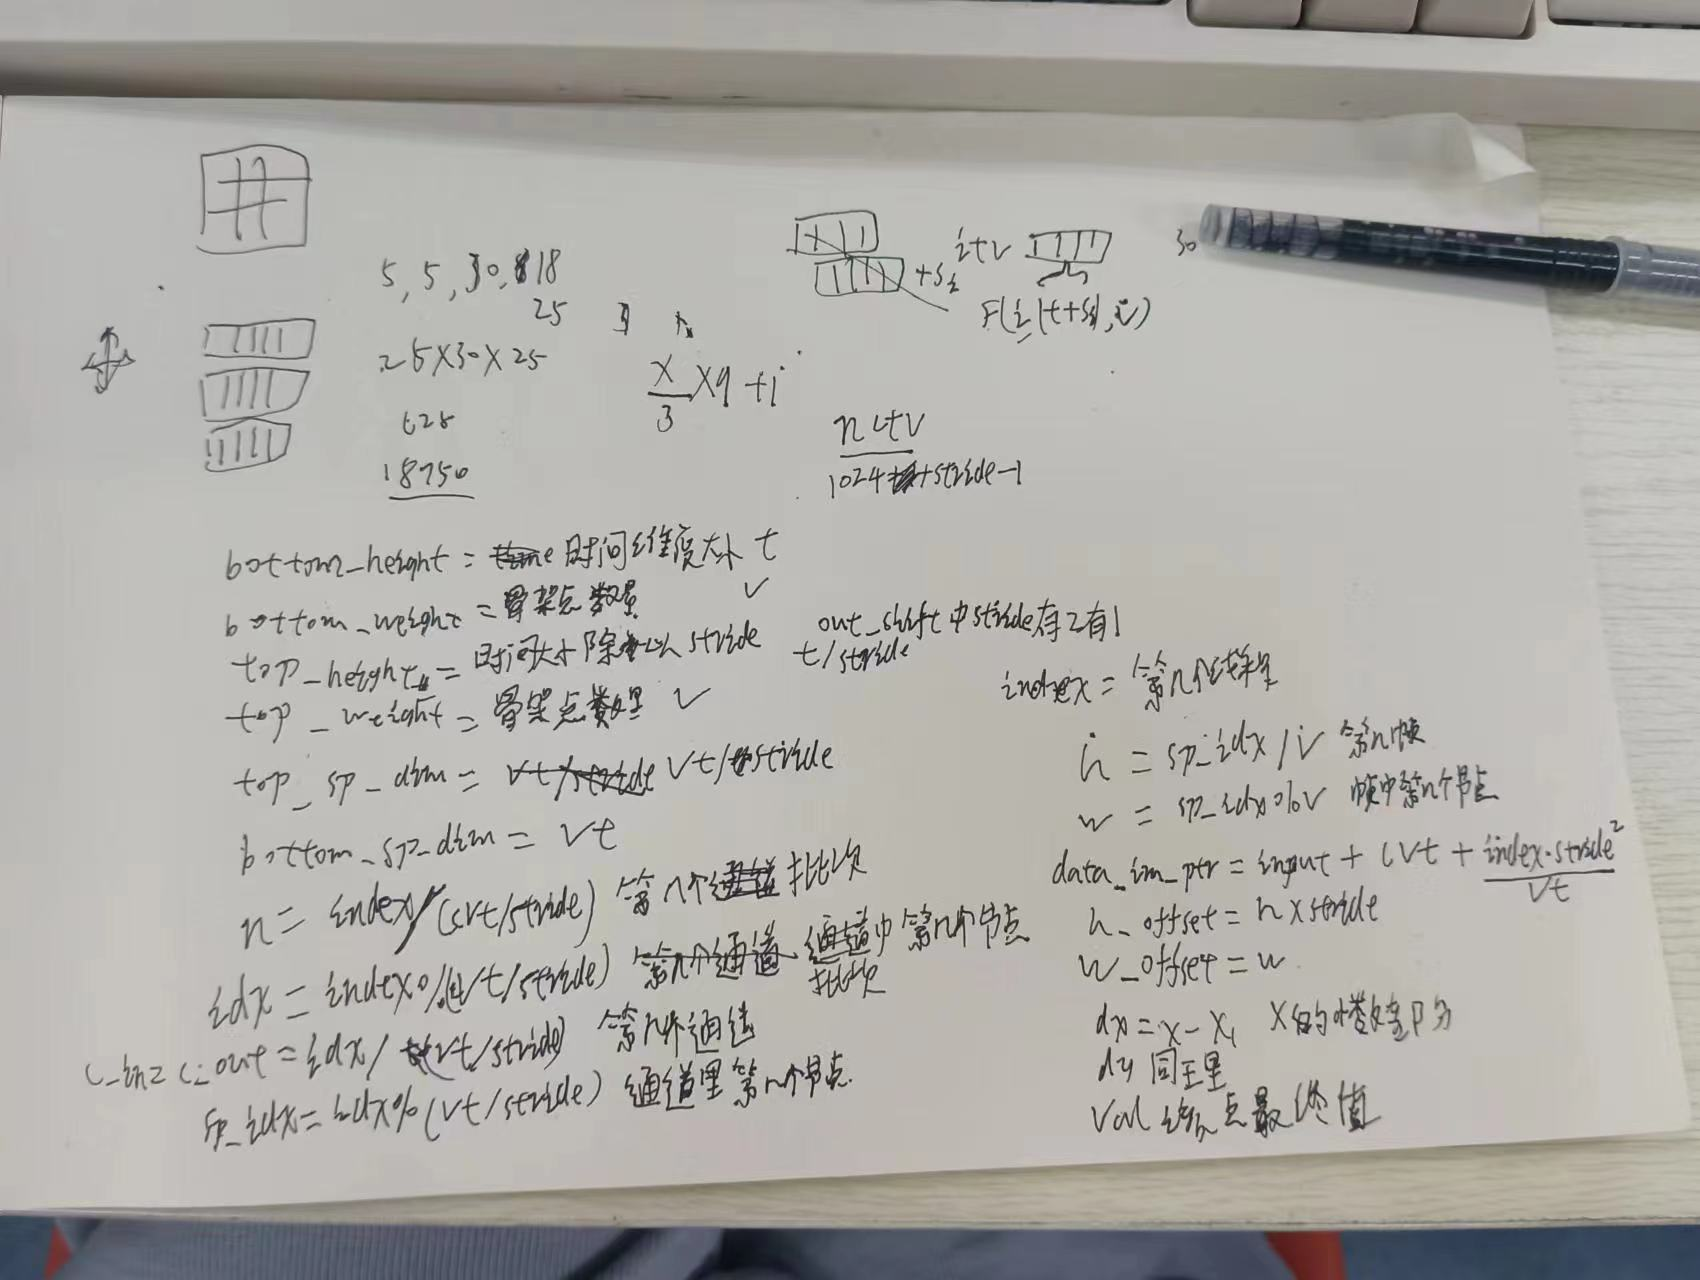 5, 5, 30, 18
25
25×30×25
625
18750
x/3 ×9 + i
i+v
30
nctv
1024+stride-1
bottom_height = 时间维度大小 t
bottom_weight = 骨架点数量 v
top_height = 时间大小除以 stride t/stride
out_shift中stride有2有1
top_weight = 骨架点数量 v
top_sp_dim = vt/stride
bottom_sp_dim = vt
n = index/(cvt/stride) 第n个批次
idx = index%(cvt/stride) 批次中第n个节点
c_in = c_out = idx/(vt/stride) 第n个通道
sp_idx = idx%(vt/stride) 通道里第n个节点.
index = 第n个结果
h = sp_idx/v 第n帧
w = sp_idx%v 帧中第n个节点
data_im_ptr = input + cvt + index·stride²/vt
h_offset = h×stride
w_offset = w
dx = x - x₁ x的小数部分
dy 同理
val 该点最终值